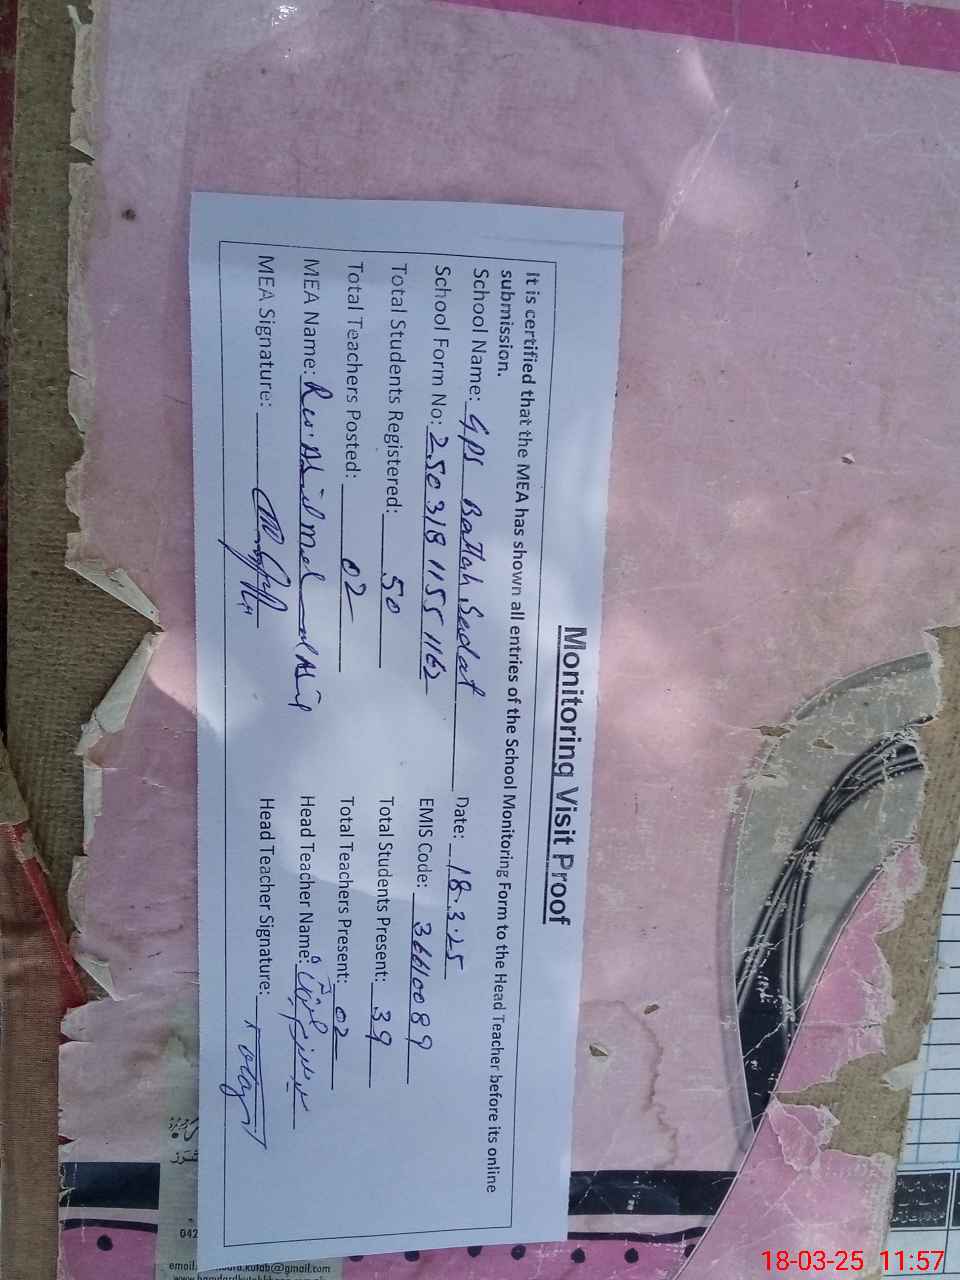 Monitoring Visit Proof
It is certified that the MEA has shown all entries of the School Monitoring Form to the Head Teacher before its online
submission.
School Name: GPS Battah Sadat Date: 18.3.25
School Form No: 250318 1155 1162 EMIS Code: 36610089
Total Students Registered: 50 Total Students Present: 39
Total Teachers Posted: 02 Total Teachers Present: 02
MEA Name: Head Teacher Name:
MEA Signature: Head Teacher Signature:
042
email:
kutab@gmail.com
18-03-25 11:57